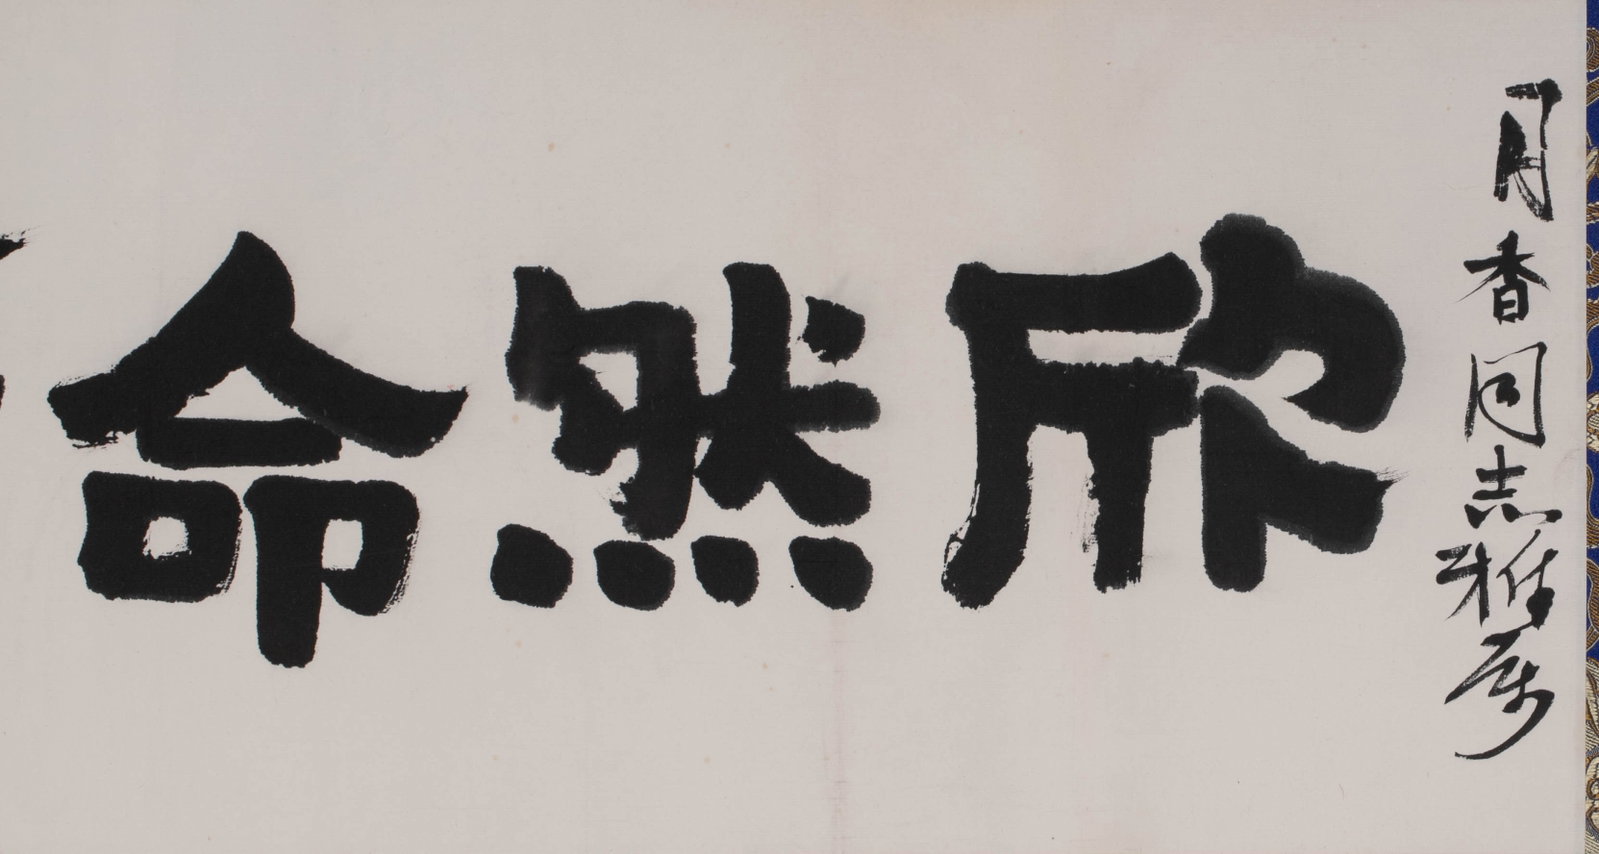 月香同志雅属
欣然命